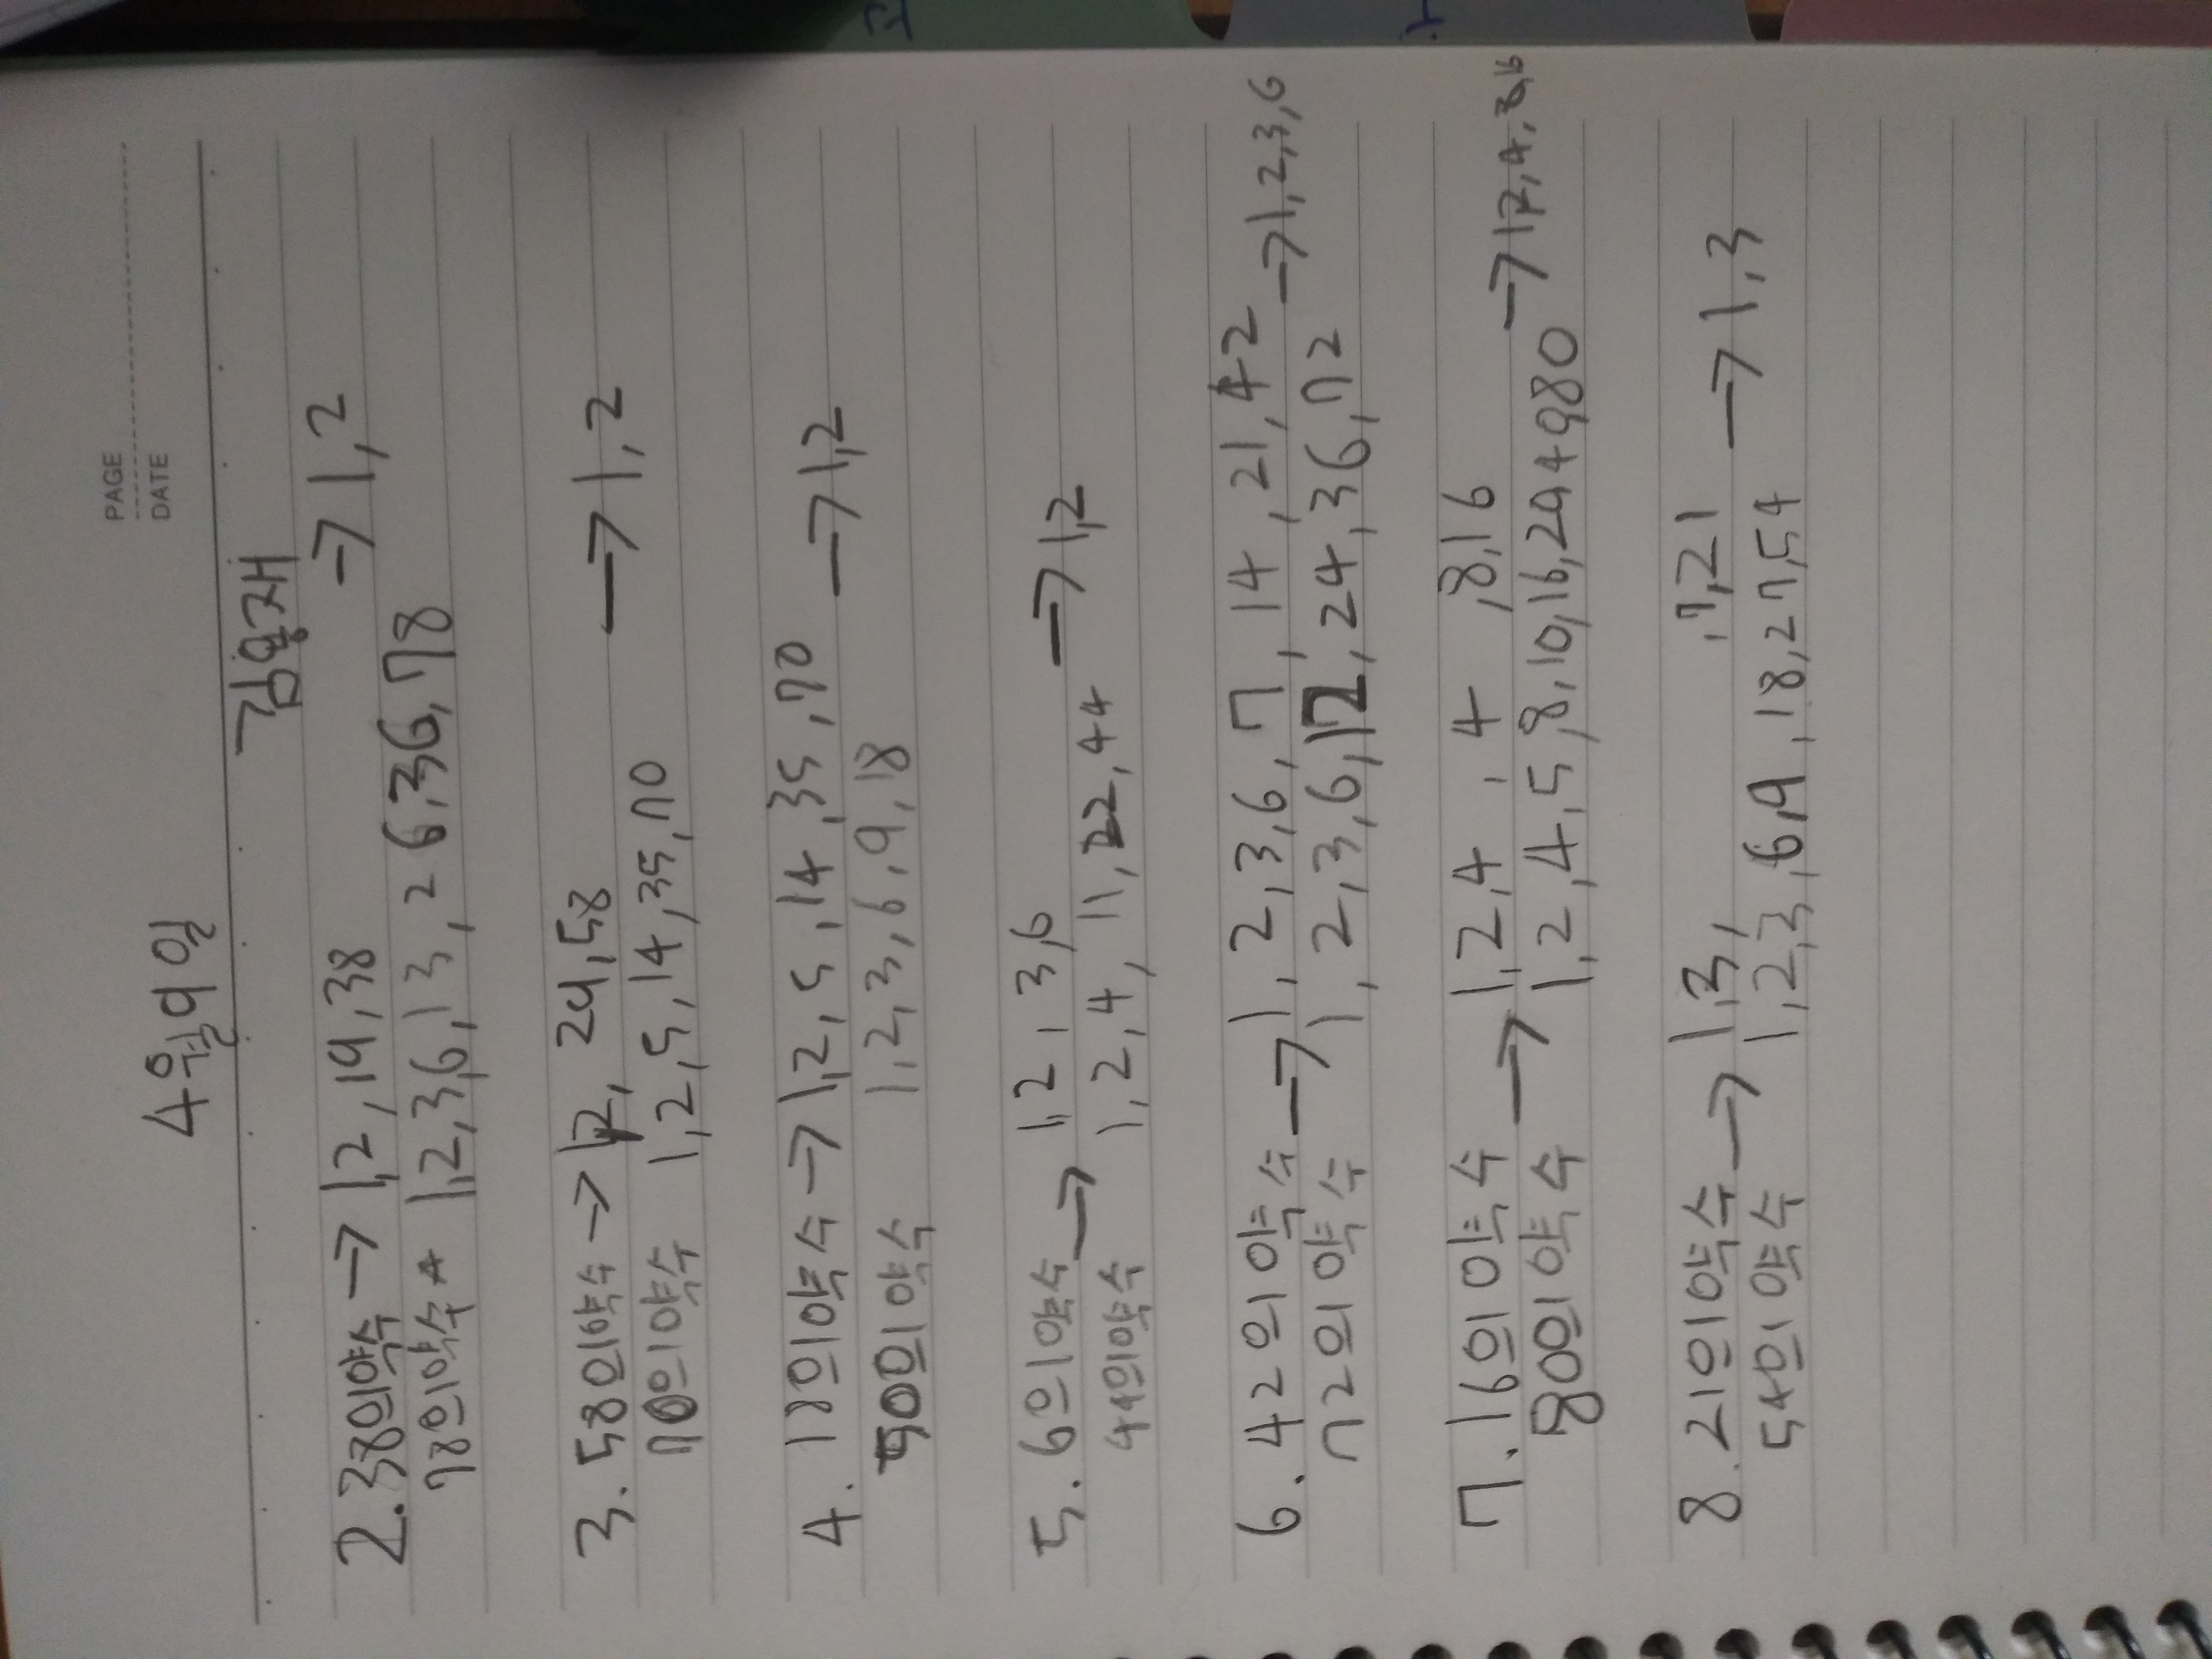 PAGE
DATE
4월 9일
김용재
2. 38의 약수 → 1, 2, 19, 38 → 1, 2
78의 약수 → 1, 2, 3, 6, 13, 26, 36, 78
3. 58의 약수 → 1, 2, 29, 58 → 1, 2
70의 약수 1, 2, 5, 14, 35, 70
4. 18의 약수 → 1, 2, 5, 14, 35, 70 → 1, 2
50의 약수 1, 2, 3, 6, 9, 18
5. 6의 약수 → 1, 2, 3, 6 → 1, 2
44의 약수 1, 2, 4, 11, 22, 44
6. 42의 약수 → 1, 2, 3, 6, 7, 14, 21, 42 → 1, 2, 3, 6
72의 약수 1, 2, 3, 6, 12, 24, 36, 72
7. 16의 약수 → 1, 2, 4, 4, 8, 16 → 1, 2, 4, 8, 16
80의 약수 1, 2, 4, 5, 8, 10, 16, 20, 40, 80
8. 21의 약수 → 1, 3, , 7, 21 → 1, 3
54의 약수 1, 2, 3, 6, 9, 18, 27, 54